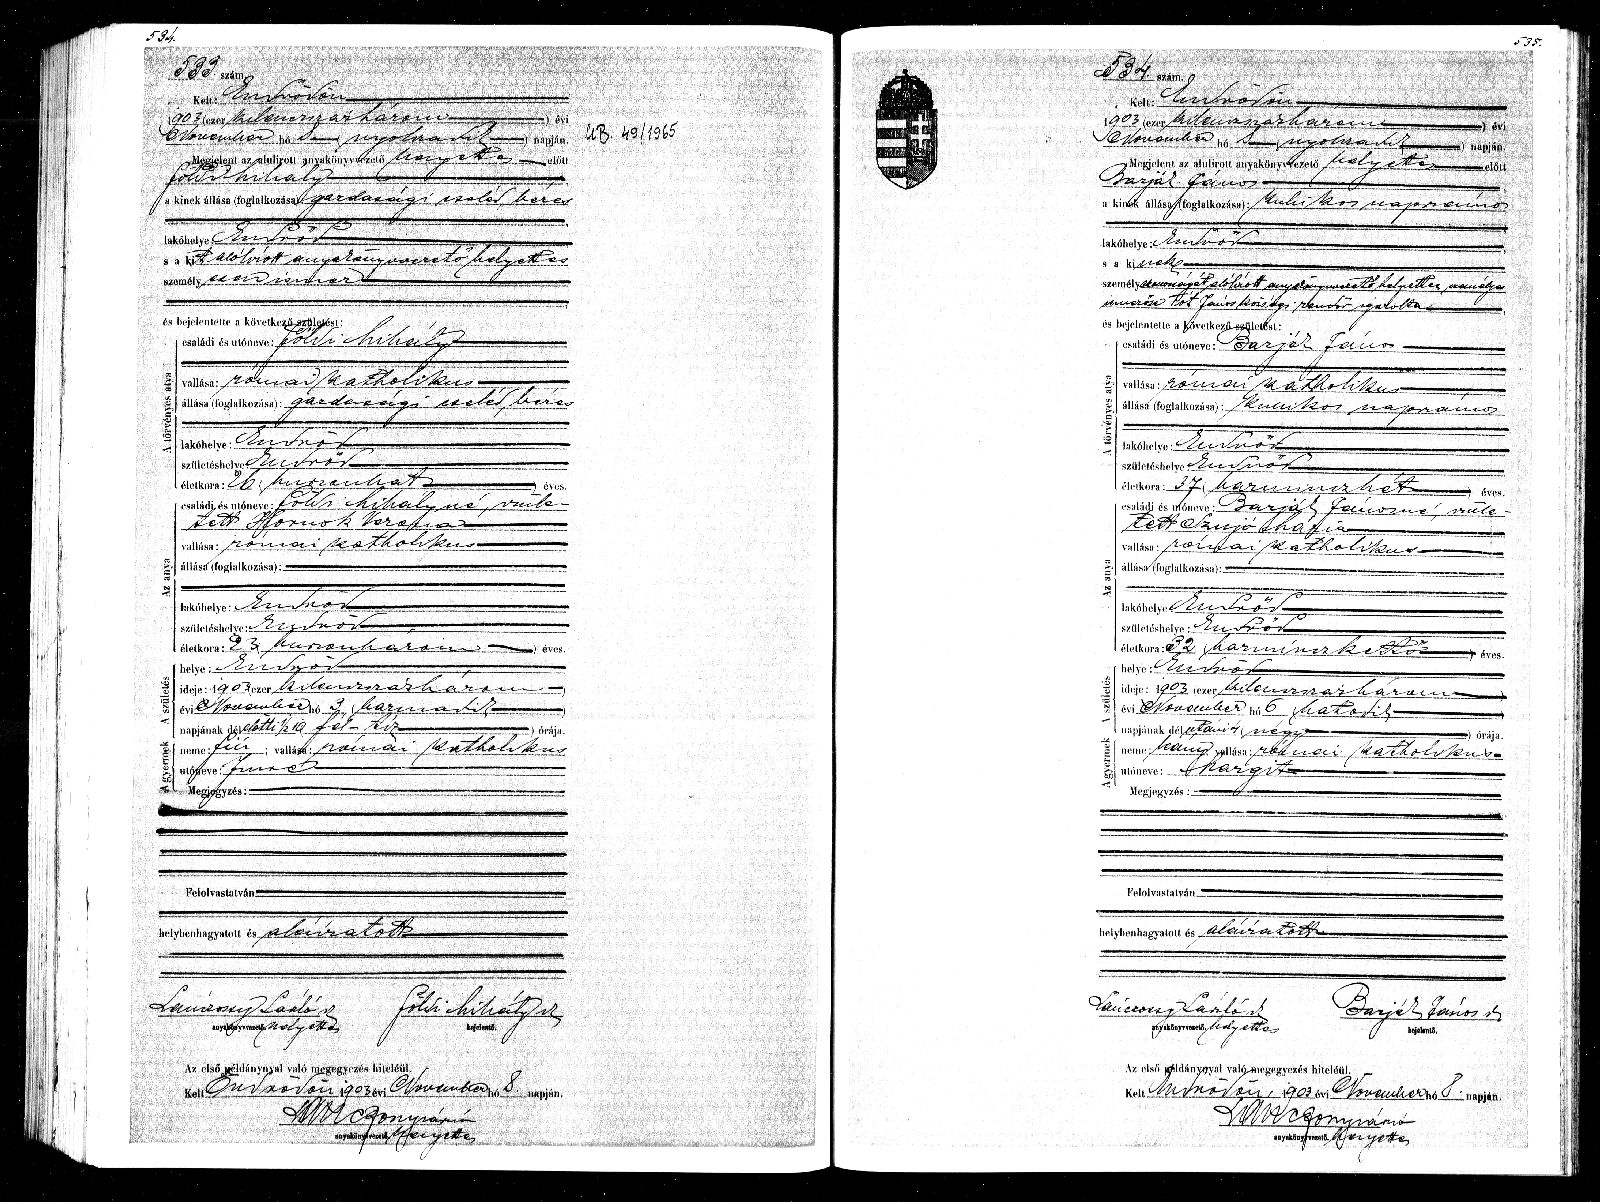 534.
533 szám
Kelt: Endrődön
1903 (ezer kilenczszázhárom) évi
November hó 8 (nyolczadik) napján.
UB. 49/1965
Megjelent az alulirott anyakönyvvezető helyettes előtt
Földi Mihály
a kinek állása (foglalkozása) gazdasági cseléd, béres
lakóhelye Endrőd
s a kit alólirott anyakönyvvezető helyettes
személyesen ismer
és bejelentette a következő születést:
A törvényes atya
családi és utóneve: Földi Mihály
vallása: római katholikus
állása (foglalkozása): gazdasági cseléd, béres
lakóhelye: Endrőd
születéshelye Endrőd
életkora: 26 (huszonhat) éves.
Az anya
családi és utóneve: Földi Mihályné, szüle-
tett Hornok Verona
vallása: római katholikus
állása (foglalkozása):
lakóhelye: Endrőd
születéshelye: Endrőd
életkora: 23 (huszonhárom) éves.
A születés
helye: Endrőd
ideje: 1903 (ezer kilenczszázhárom)
évi November hó 3 (harmadik)
napjának délelőtti ½10 (fél tiz) órája.
A gyermek
neme: fiú; vallása: római katholikus
utóneve: Imre
Megjegyzés:
Felolvastatván
helybenhagyatott és aláiratott
László Földi Mihály
anyakönyvvezető helyettes bejelentő.
Az első példánynyal való megegyezés hiteléül.
Kelt Endrődön 1903 évi November hó 8. napján.
anyakönyvvezető. helyettes
535.
534 szám.
Kelt: Endrődön
1903 (ezer kilenczszázhárom) évi
November hó 8 (nyolczadik) napján.
Megjelent az alulirott anyakönyvvezető helyettes előtt
Barják János
a kinek állása (foglalkozása): kubikos napszámos
lakóhelye: Endrőd
s a kinek
személyazonosságát alólirott anyakönyvvezető helyettes személyesen
ismerős Tót János községi rendőr igazolta
és bejelentette a következő születést:
A törvényes atya
családi és utóneve: Barják János
vallása: római katholikus
állása (foglalkozása): kubikos napszámos
lakóhelye: Endrőd
születéshelye Endrőd
életkora: 37 (harminczhét) éves.
Az anya
családi és utóneve: Barják Jánosné, szüle-
tett Szujó Mária
vallása: római katholikus
állása (foglalkozása):
lakóhelye Endrőd
születéshelye: Endrőd
életkora: 32 (harminczkettő) éves.
A születés
helye: Endrőd
ideje: 1903 (ezer kilenczszázhárom)
évi November hó 6 (hatodik)
napjának délutáni 4 (négy) órája.
A gyermek
neme: leány; vallása: római katholikus
utóneve: Margit
Megjegyzés:
Felolvastatván
helybenhagyatott és aláiratott
László Barják János
anyakönyvvezető. helyettes bejelentő.
Az első példánynyal való megegyezés hiteléül.
Kelt Endrődön, 1903 évi November hó 8. napján.
anyakönyvvezető. helyettes